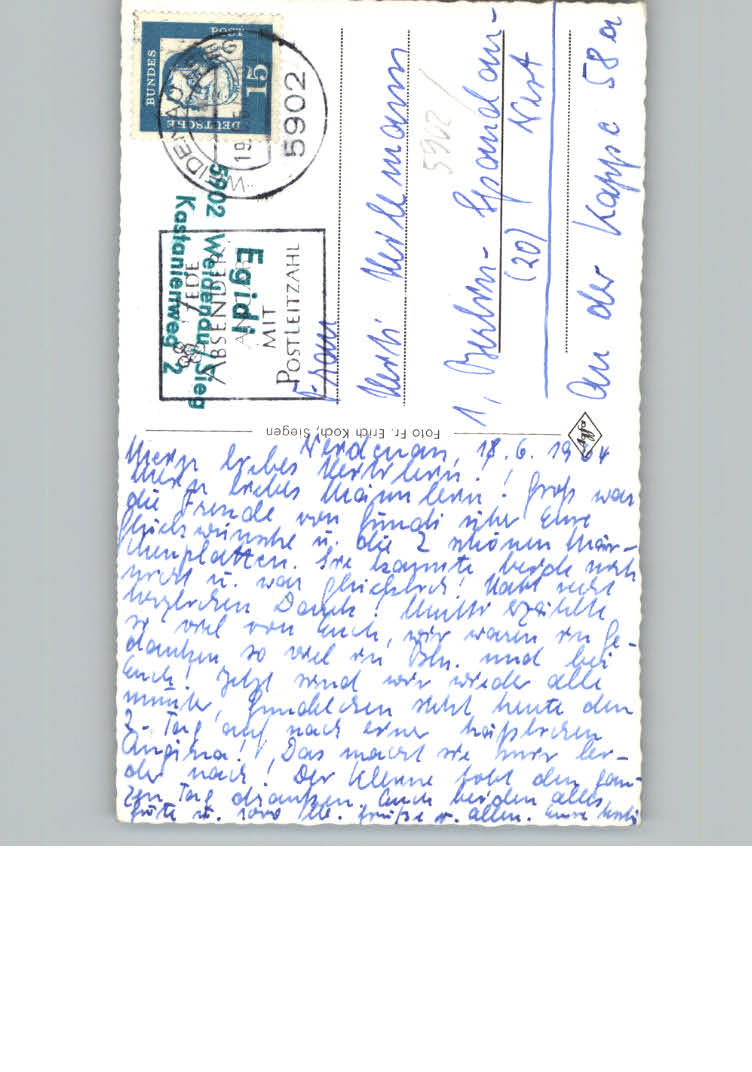 Weidenau, 18.6.1964
Mein liebes Hertilein!
Mein liebes Männlein! Groß war
die Freude von Gundi über Eure
Glückwünsche u. die 2 schönen Mär-
chenplatten. Sie kannte beide noch
nicht u. war glücklich! Habt recht
herzlichen Dank! Mutti erzählte
so viel von Euch, wir waren in Ge-
danken so viel in Bln. und bei
Euch! Jetzt sind wir wieder alle
munter, Gundelchen steht heute den
2. Tag auf nach einer häßlichen
Angina! Das macht sie mir lei-
der nach! Der Kleine tobt den gan-
zen Tag draußen. Euch beiden alles
Gute u. 1000 lb. Grüße v. allen. Eure
Foto Fr. Erich Koch, Siegen
DEUTSCHE
BUNDES
POST
15
WEIDENAU
5902
JEDE
ABSENDER
MIT
POSTLEITZAHL
Egidi
5902 Weidenau/Sieg
Kastanienweg 2
Frau
Herti
5902/
1, Berlin-Spandau-
(20) West
An der Kappe 58a